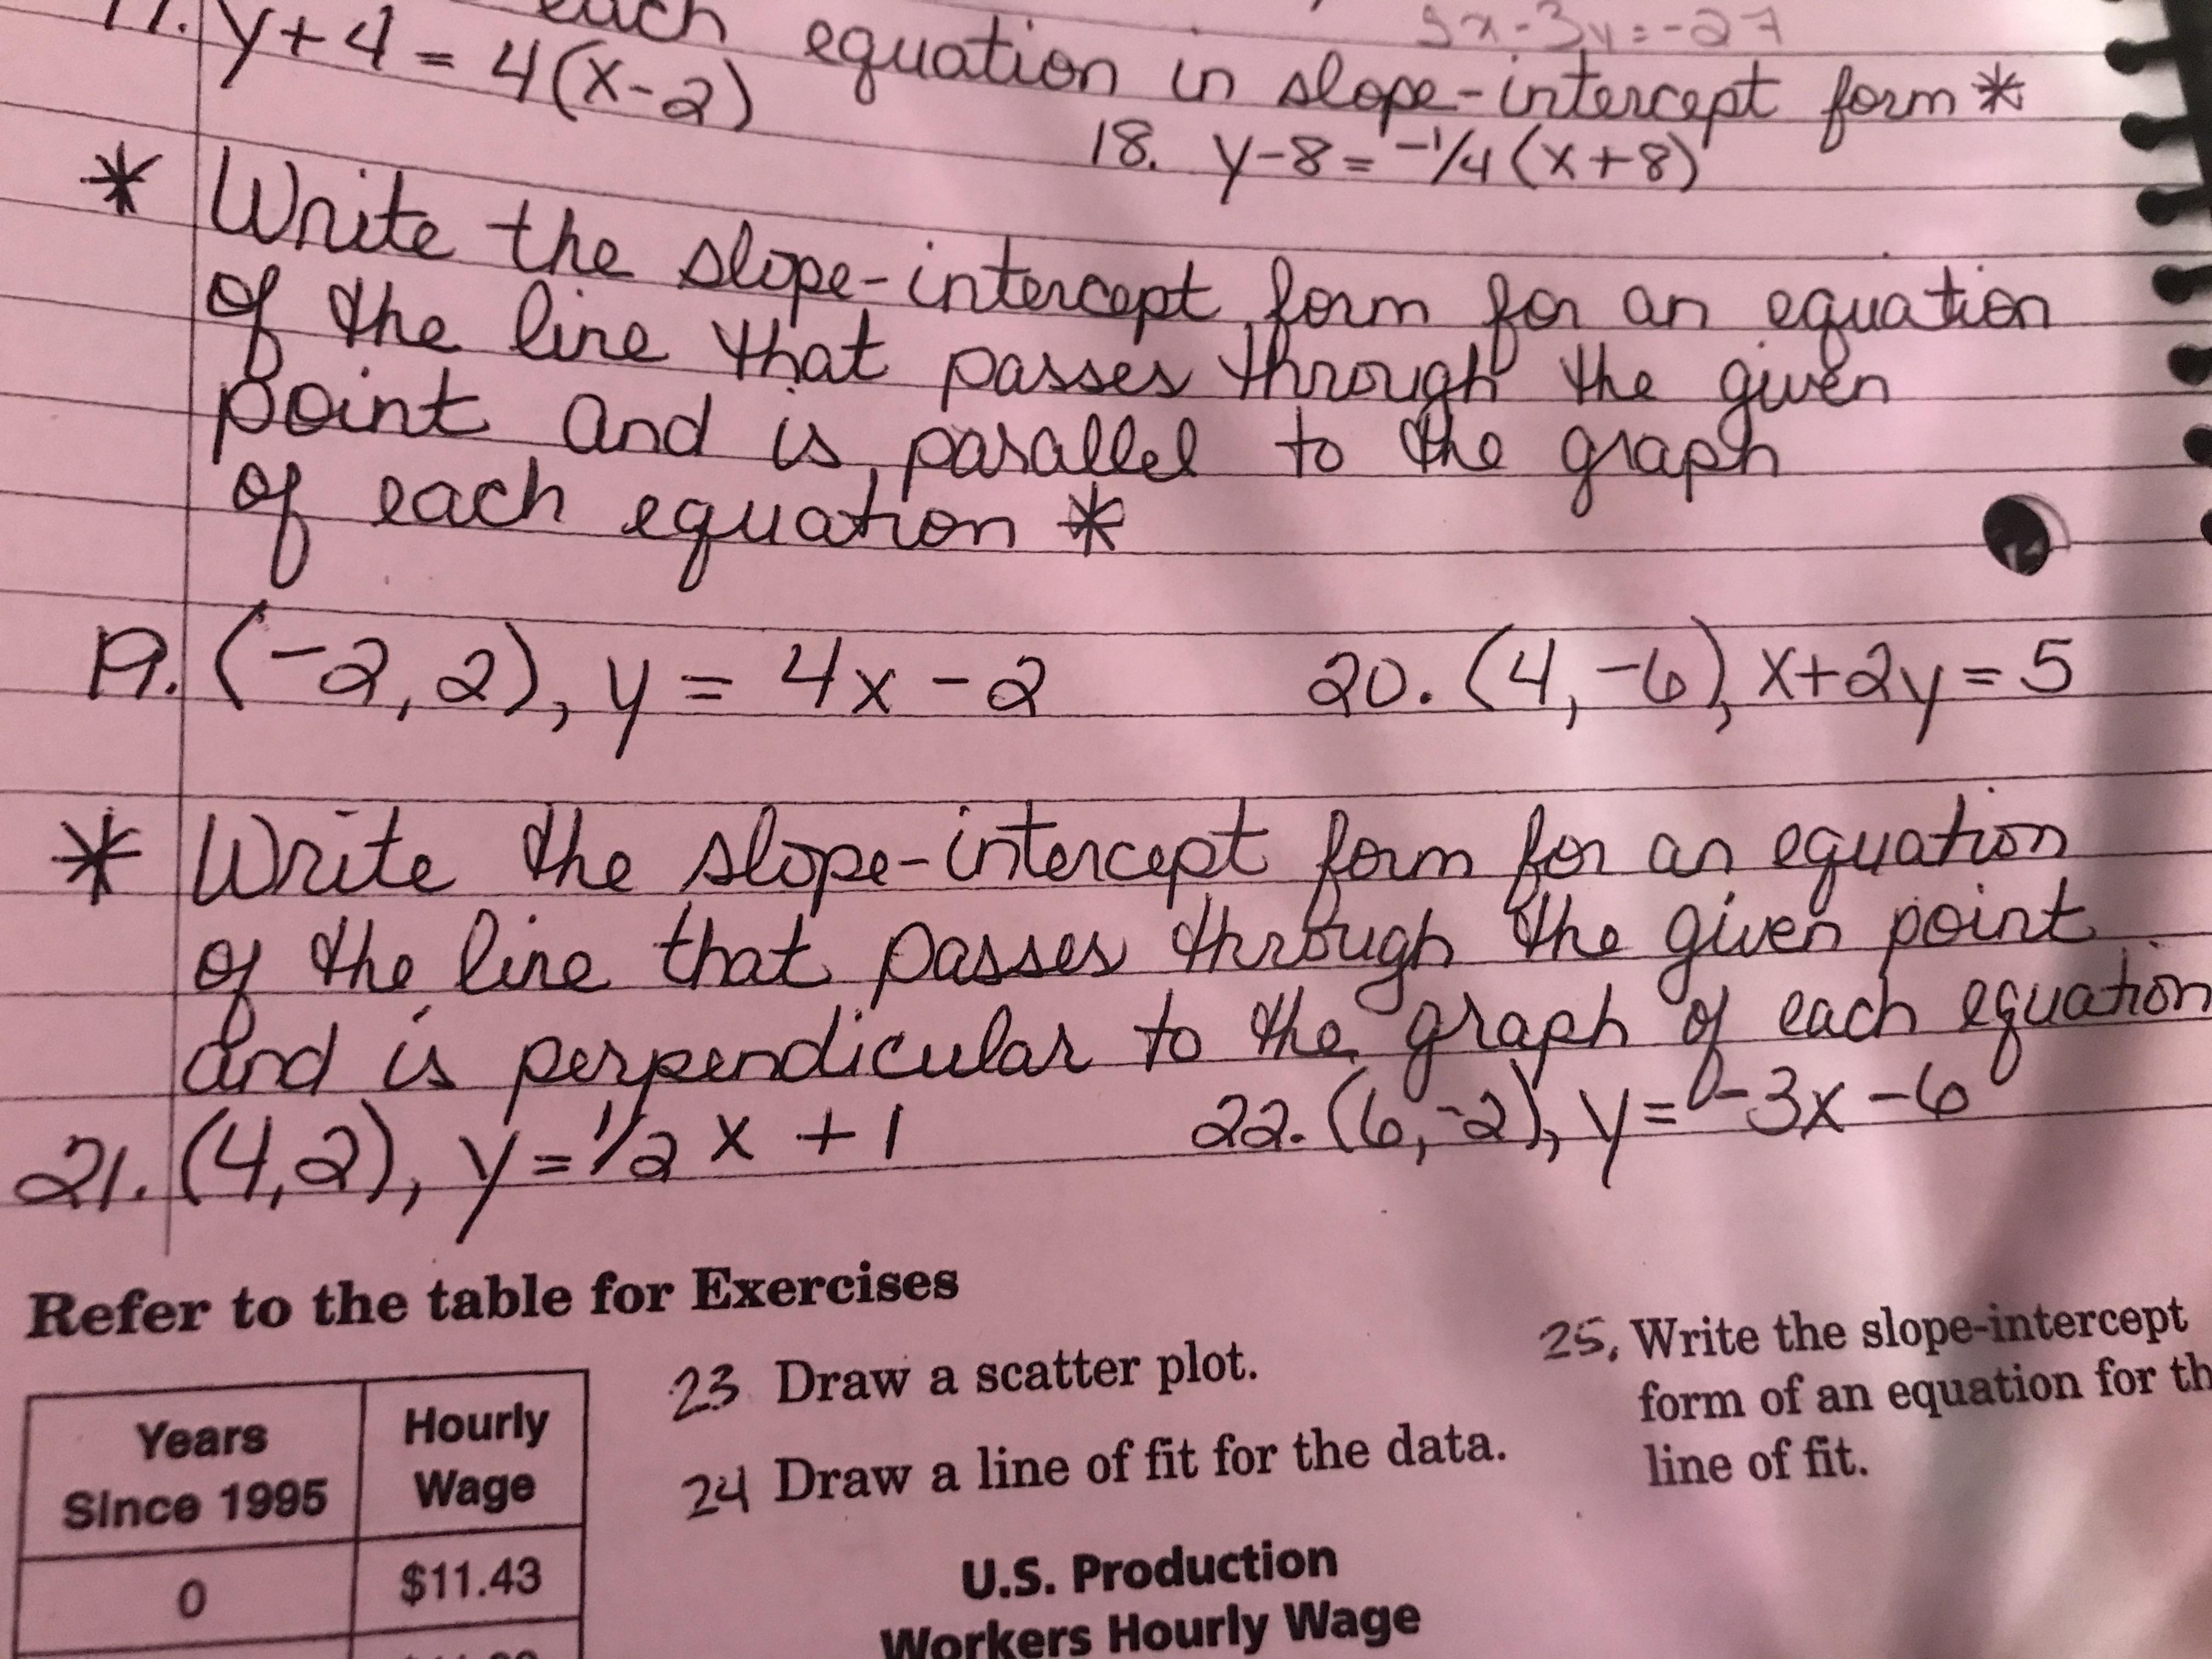 each equation in slope-intercept form *
17. y+4 = 4(x-2)
18. y-8 = -1/4 (x+8)
* Write the slope-intercept form for an equation
of the line that passes through the given
point and is parallel to the graph
of each equation *
19. (-2,2), y = 4x-2
20. (4,-6), x+2y=5
* Write the slope-intercept form for an equation
of the line that passes through the given point
and is perpendicular to the graph of each equation
21. (4,2), y=1/2 x +1
22. (6,-2), y=-3x-6
Refer to the table for Exercises
23 Draw a scatter plot.
24 Draw a line of fit for the data.
25, Write the slope-intercept
form of an equation for th
line of fit.
Years
Since 1995
Hourly
Wage
0
$11.43
U.S. Production
Workers Hourly Wage